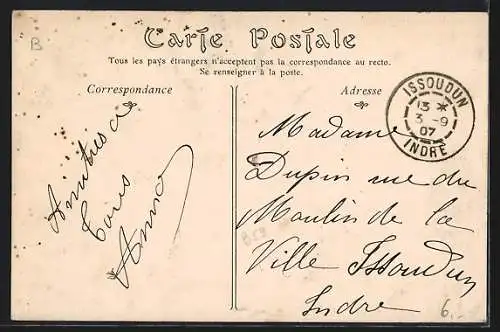 B
Carte Postale
Tous les pays étrangers n'acceptent pas la correspondance au recto.
Se renseigner à la poste.
Correspondance
Adresse
ISSOUDUN
13 *
3 -9
07
INDRE
Amitiés à
tous
Anna
Madame
Dupin rue du
Moulin de la
Ville Issoudun
Indre
6.-